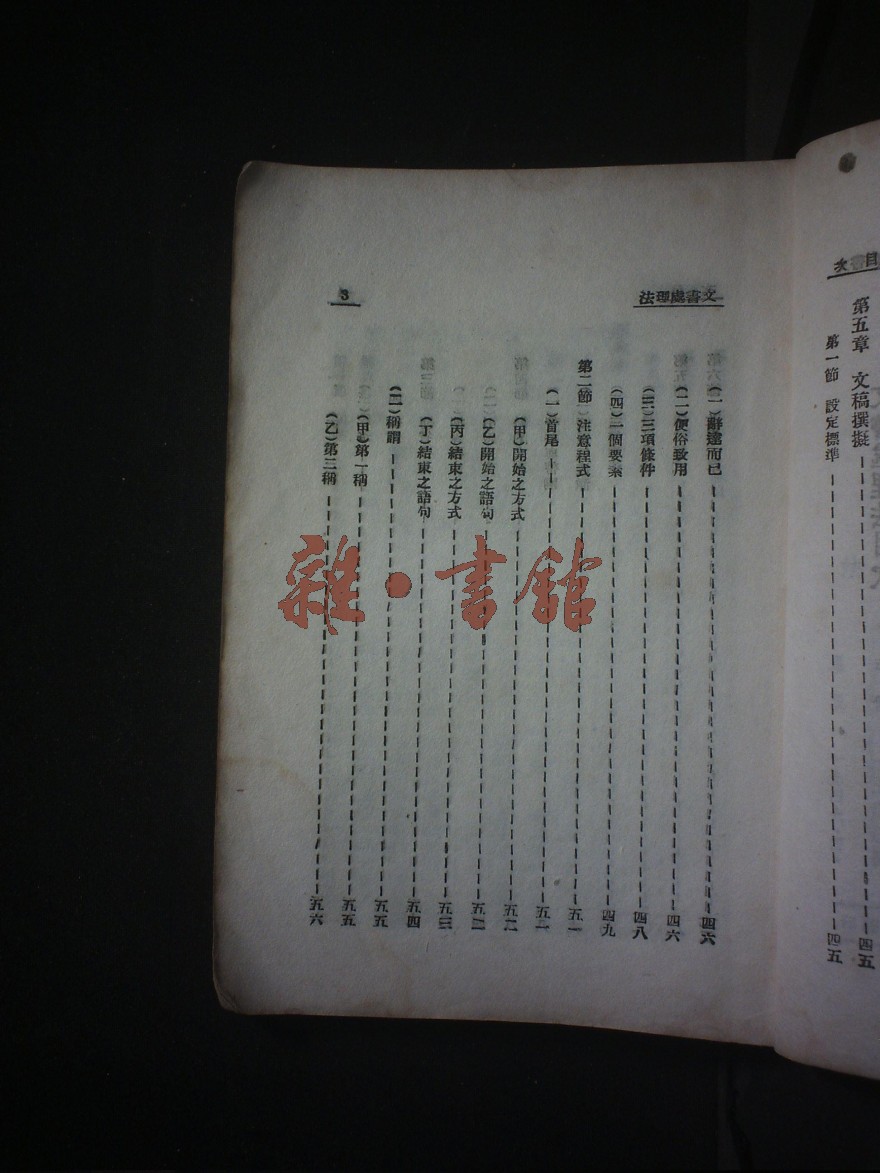 目次
第五章　文稿撰擬——————四五
第一節　設定標準——————四五
文書處理法
3
（一）辭達而已——————四六
（二）便俗致用——————四六
（三）三項條件——————四八
（四）二個要素——————四九
第二節　注意程式——————五一
（一）首尾——————五二
（甲）開始之方式——————五二
（乙）開始之語句——————五三
（丙）結束之方式——————五三
（丁）結束之語句——————五四
（二）稱謂——————五五
（甲）第一稱——————五五
（乙）第二稱——————五六
雜·書館